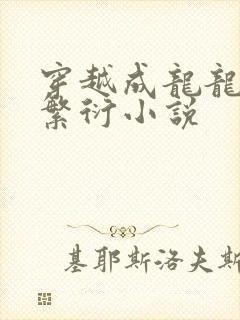 穿越成龍龍
繁衍小說
基耶斯洛夫斯